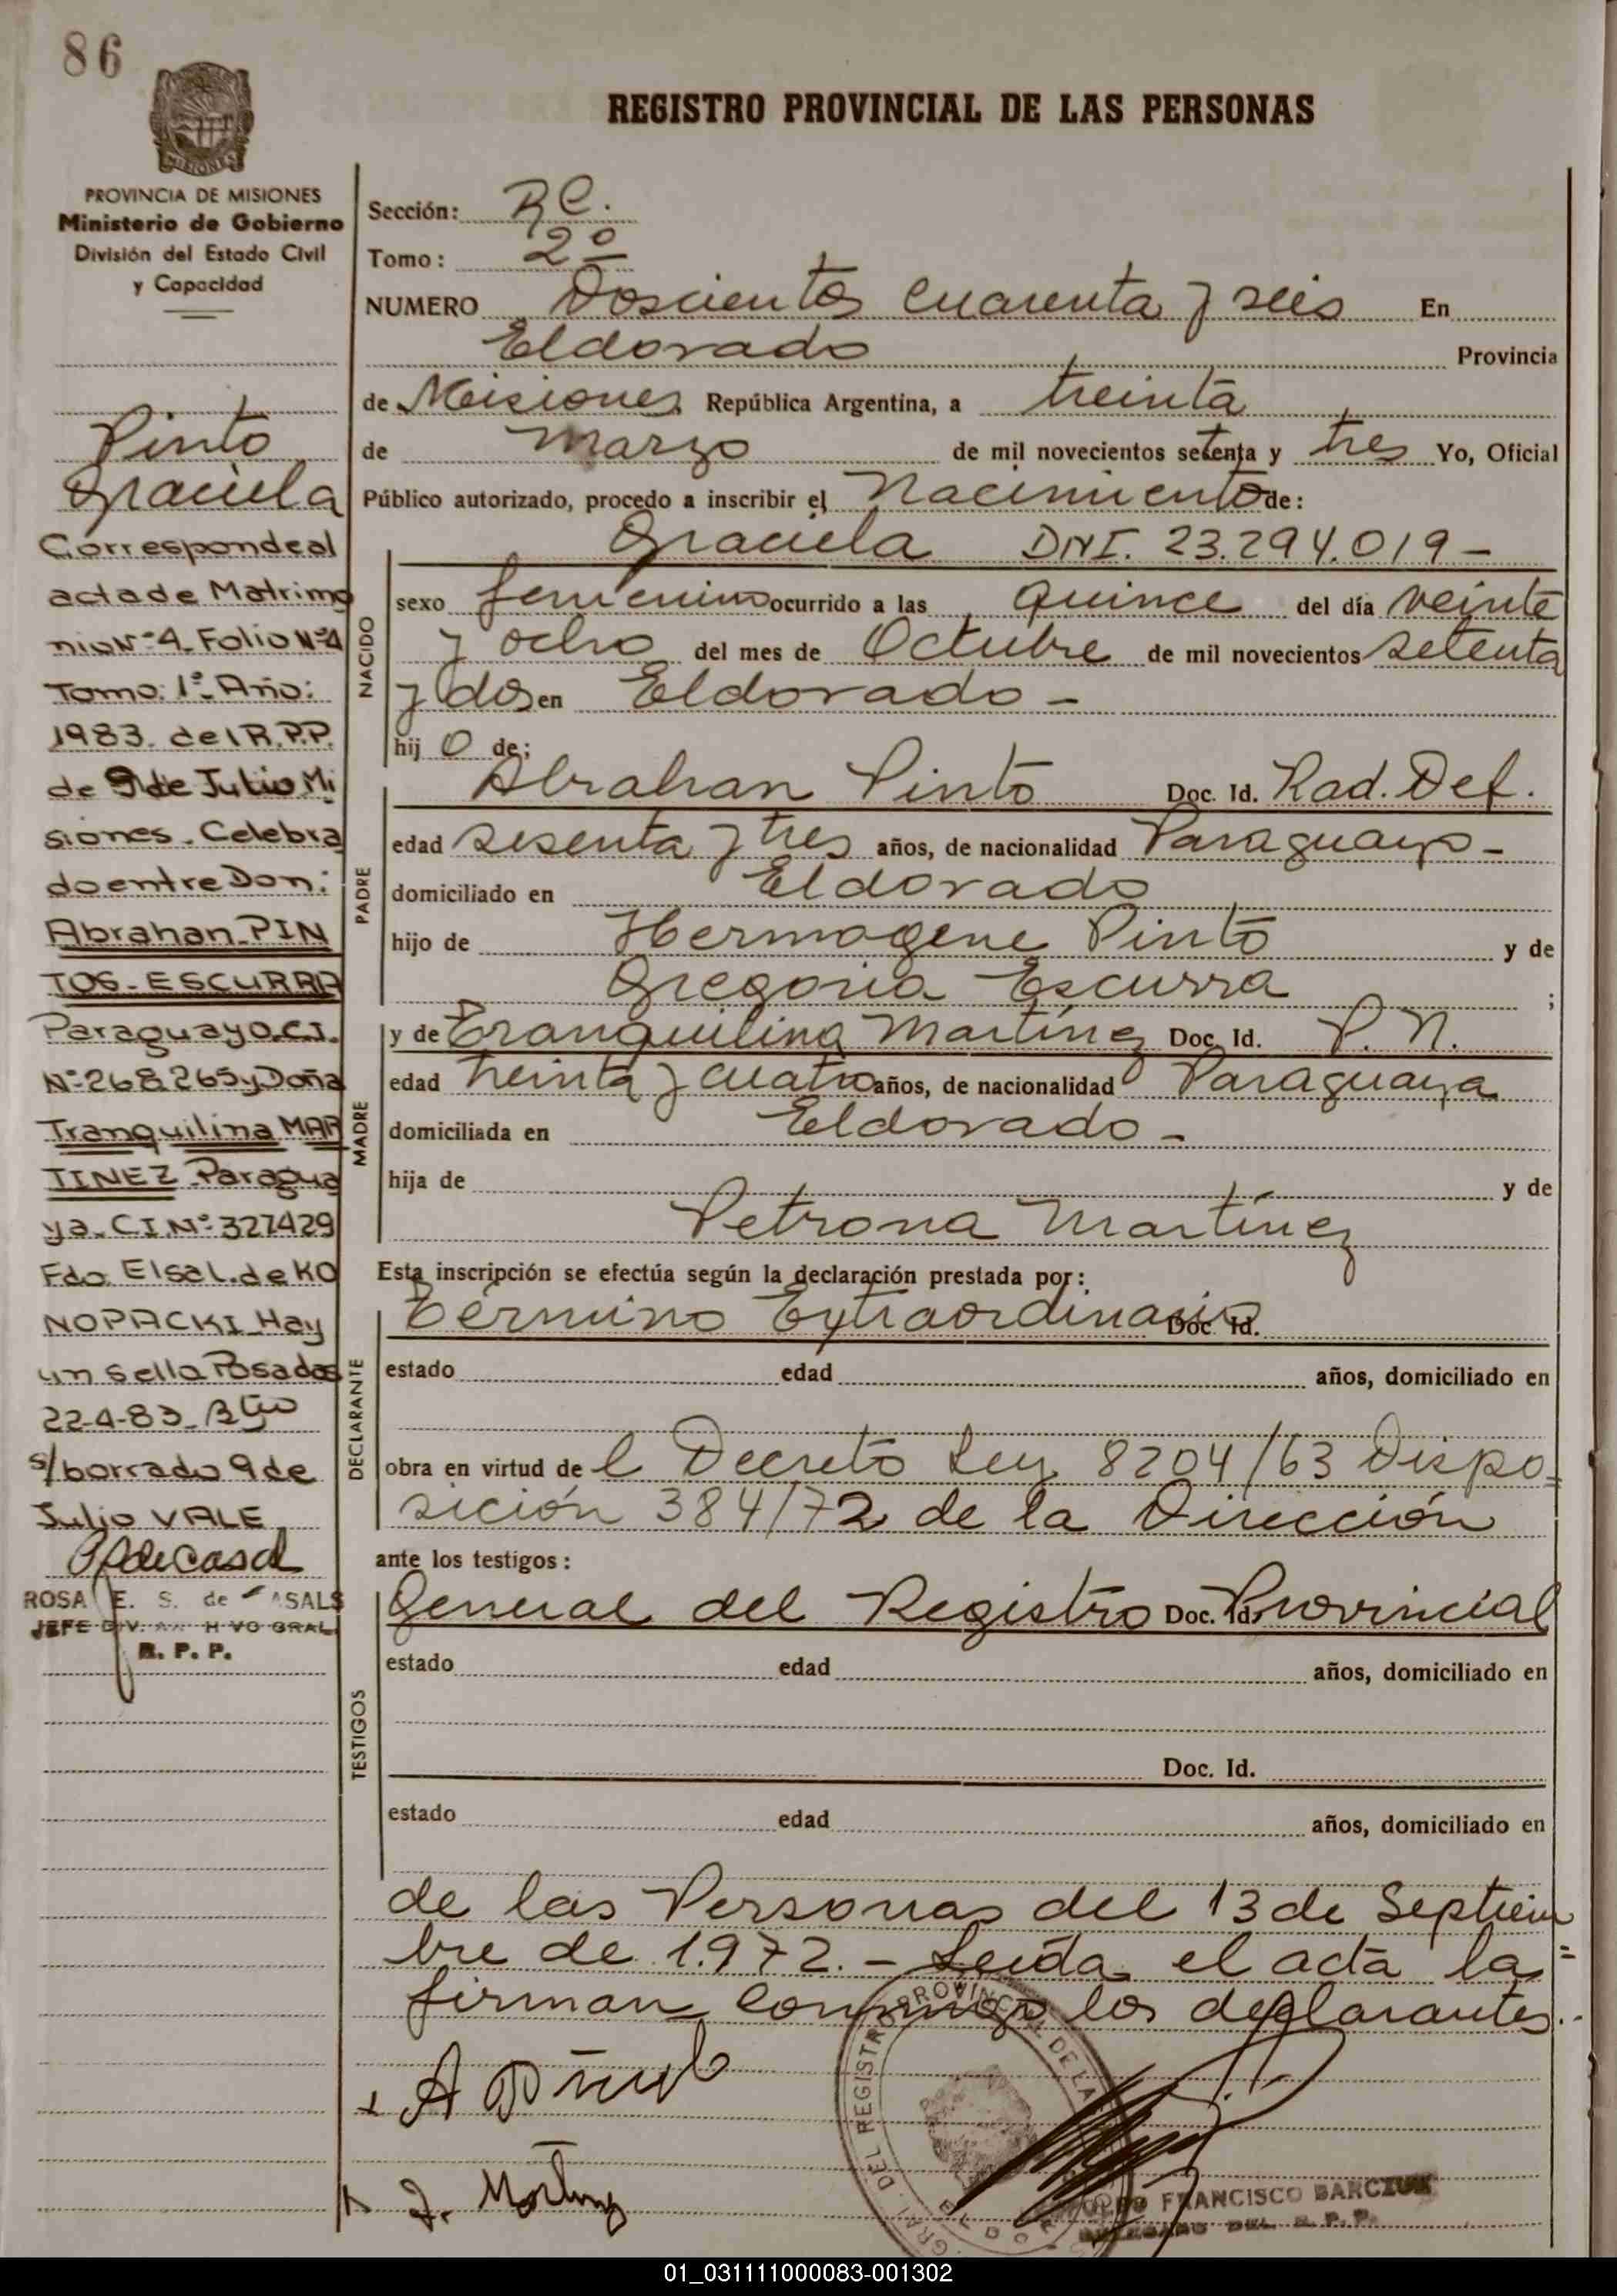 86
MISIONES
PROVINCIA DE MISIONES
Ministerio de Gobierno
División del Estado Civil
y Capacidad
Pinto
Graciela
Correspondeal
acta de Matrimo
nio Nº 4 Folio Nº 4
Tomo: 1º Año:
1983 del R.P.P.
de 9 de Julio Mi
siones. Celebra
do entre Don:
Abrahan PIN
TOS-ESCURRA
Paraguayo C.I.
Nº 268.265 y Doña
Tranquilina MAR
TINEZ Paragua
ya. C.I. Nº 327429
Fdo. Elsa L. de KO
NOPACKI Hay
un sello Posadas
22-4-83
s/borrado 9 de
Julio VALE
ROSA E. S. de CASALS
JEFE DIV. GRAL.
R. P. P.
REGISTRO PROVINCIAL DE LAS PERSONAS
Sección: RC.
Tomo: 2º
NUMERO Doscientos cuarenta y seis En
Eldorado Provincia
de Misiones República Argentina, a treinta
de marzo de mil novecientos setenta y tres Yo, Oficial
Público autorizado, procedo a inscribir el Nacimiento de:
Graciela DNI. 23.294.019-
NACIDO
sexo femenino ocurrido a las quince del día veinte
y ocho del mes de Octubre de mil novecientos setenta
y dos en Eldorado-
hij o de:
PADRE
Abrahan Pinto Doc. Id. Rad. Def.
edad sesenta y tres años, de nacionalidad Paraguayo-
domiciliado en Eldorado
hijo de Hermogene Pinto y de
Gregoria Escurra ;
MADRE
y de Tranquilina Martínez Doc. Id. P. N.
edad treinta y cuatro años, de nacionalidad Paraguaya
domiciliada en Eldorado-
hija de y de
Petrona Martínez
Esta inscripción se efectúa según la declaración prestada por:
DECLARANTE
Término Extraordinario Doc. Id.
estado edad años, domiciliado en
obra en virtud de l Decreto Ley 8204/63 Dispo=
sición 384/72 de la Dirección
ante los testigos:
TESTIGOS
General del Registro Doc. Id. Provincial
estado edad años, domiciliado en
Doc. Id.
estado edad años, domiciliado en
de las Personas del 13 de Septiem=
bre de 1.972.- Leída el acta la
firman conmigo los declarantes.-
DEL REGISTRO PROVINCIAL DE LA
FRANCISCO BARCZUK
DELEGADO DEL R. P. P.
01_031111000083-001302